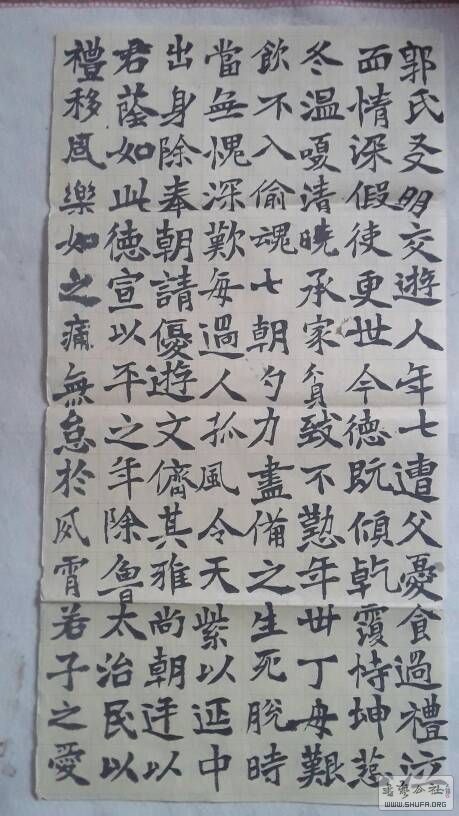 郭氏友明交遊人年七遭父憂食過禮泣
而情深假使更世今德既傾乾覆恃坤慈
冬溫嗄清曉承家貧致不懃年卅丁母艱
飲不入偷魂七朝勺力盡備之生死脫時
當無愧深歎每過人孤風令天紫以延中
出身除奉朝請優遊文儕其雅尚朝廷以
君蔭如此德宣以平之年除魯太治民以
禮移風樂如之痛無怠於夙宵若子之愛
書法公社
WWW.SHUFA.ORG